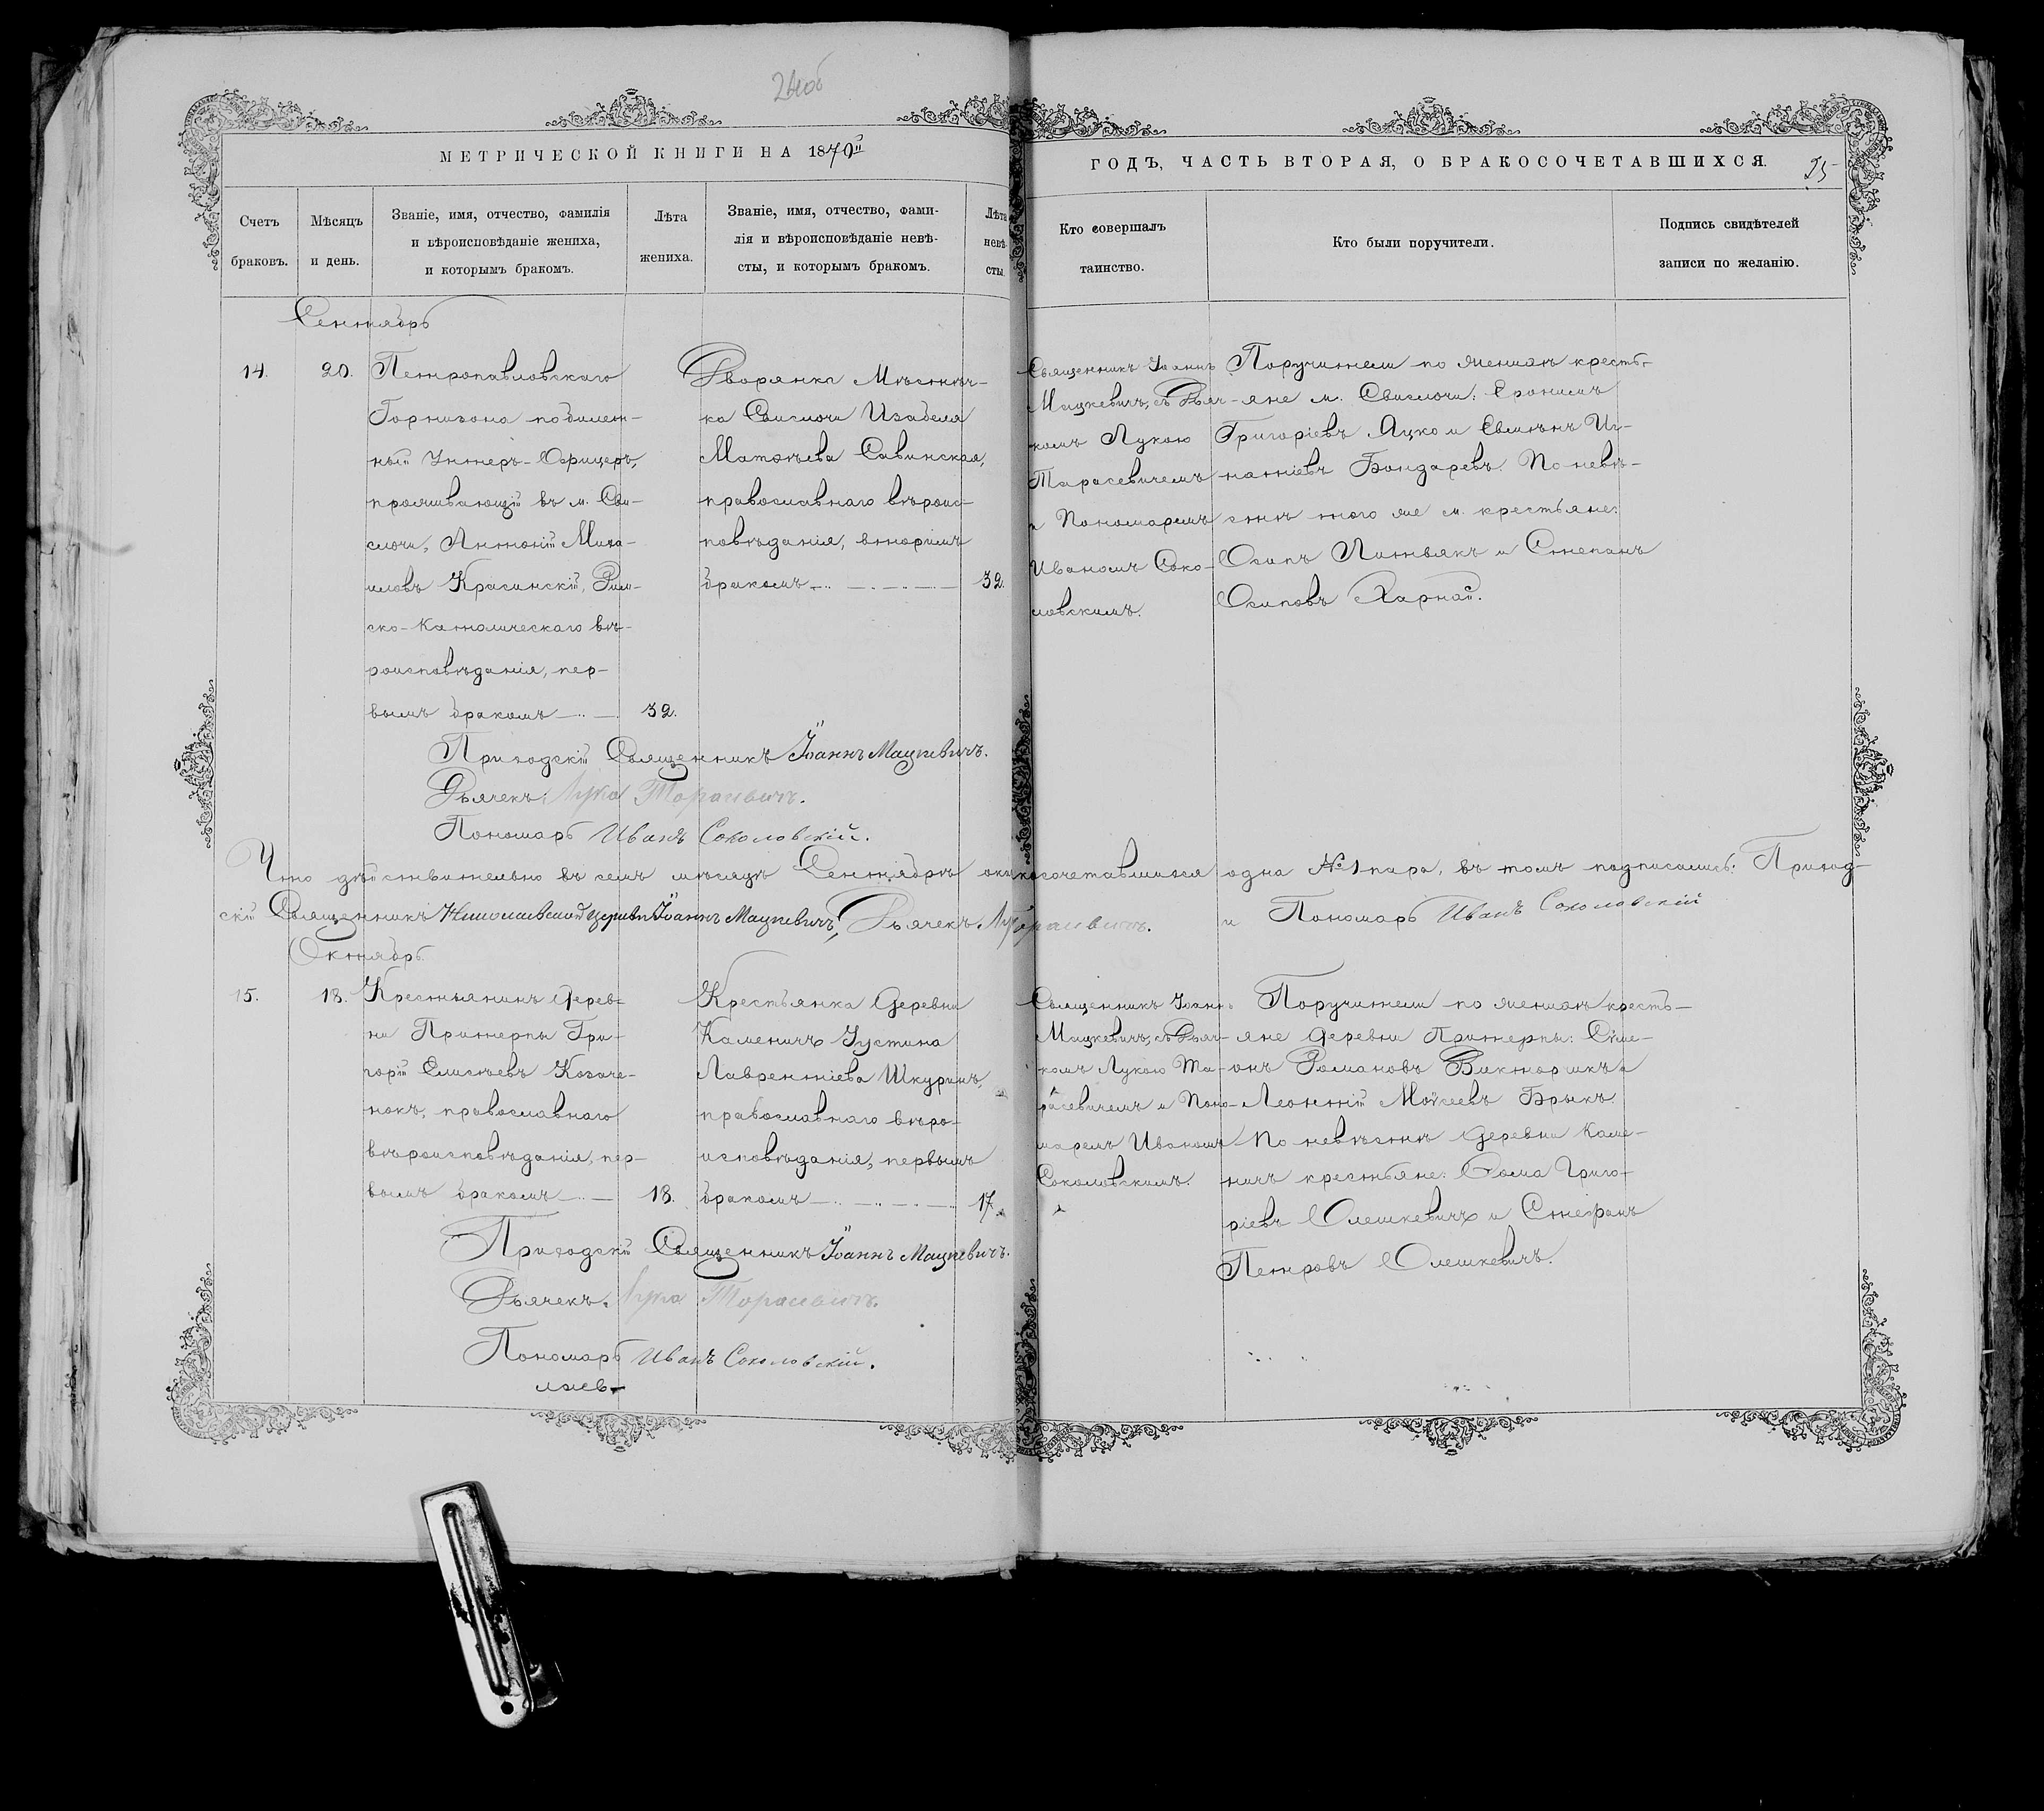 24об
МЕТРИЧЕСКОЙ КНИГИ НА 1870й
ГОДЪ, ЧАСТЬ ВТОРАЯ, О БРАКОСОЧЕТАВШИХСЯ.
25
Счетъ
браковъ.
Мѣсяцъ
и день.
Званіе, имя, отчество, фамилія
и вѣроисповѣданіе жениха,
и которымъ бракомъ.
Лѣта
жениха.
Званіе, имя, отчество, фами-
лія и вѣроисповѣданіе невѣ-
сты, и которымъ бракомъ.
Лѣта
невѣ-
сты.
Кто совершалъ
таинство.
Кто были поручители.
Подпись свидѣтелей
записи по желанію.
Сентябрь
14.
20.
Петропавловскаго
Горнизона побилет-
ный Унтеръ-Офицеръ,
проживающій въ м. Сви-
слочи, Антоній Миха-
иловъ Красинскій, Рим-
ско-Католическаго вѣ-
роисповѣданія, пер-
вымъ бракомъ
32.
Дворянка Мѣстеч-
ка Свислочи Изабеля
Матѳѣева Савинская,
православнаго вѣроис-
повѣданія, вторымъ
бракомъ
32.
Священникъ Іоаннъ
Мацкевичъ, съ Дьяч-
комъ Лукою
Тарасевичемъ
и Пономаремъ
Иваномъ Соко-
ловскимъ.
Поручители по женихѣ кресть-
яне м. Свислочи: Еронимъ
Григоріевъ Яцко и Евминъ Иг-
натіевъ Бондаревъ. По невѣ-
стѣ того же м. крестьяне:
Осипъ Литвякъ и Степанъ
Осиповъ Харнай.
Приходскій Священникъ Іоаннъ Мацкевичъ.
Дьячекъ Лука Тарасевичъ.
Пономарь Иванъ Соколовскій.
Что дѣйствительно въ семъ мѣсяцѣ Сентябрѣ бракосочетавшихся одна №1 пара, въ томъ подписались: Приход-
скій Священникъ Николаевской церкви Іоаннъ Мацкевичъ, Дьячекъ Лука Тарасевичъ. и Пономарь Иванъ Соколовскій
Октябрь.
15.
18.
Крестьянинъ Дерев-
ни Притерпы Гри-
горій Елисѣевъ Козаче-
нокъ, православнаго
вѣроисповѣданія, пер-
вымъ бракомъ
18.
Крестьянка Деревни
Каменичъ Іустина
Лаврентіева Шкуринъ,
православнаго вѣро-
исповѣданія, первымъ
бракомъ
17.
Священникъ Іоаннъ
Мацкевичъ, съ Дьяч-
комъ Лукою Та-
расевичемъ и Поно-
маремъ Иваномъ
Соколовскимъ.
Поручители по женихѣ кресть-
яне Деревни Притерпы: Симе-
онъ Романовъ Викторикъ и
Леонтій Моисеевъ Брыкъ.
По невѣстѣ Деревни Каме-
ничъ крестьяне: Ѳома Григо-
ріевъ Олешкевичъ и Стефанъ
Петровъ Олешкевичъ.
Приходскій Священникъ Іоаннъ Мацкевичъ.
Дьячекъ Лука Тарасевичъ.
Пономарь Иванъ Соколовскій.